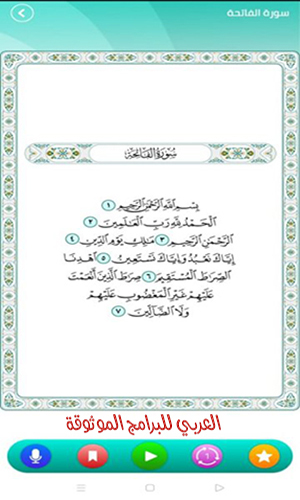 سورة الفاتحة
سُورَةُ الفَاتِحَةِ
بِسْمِ اللَّهِ الرَّحْمَٰنِ الرَّحِيمِ ١
الْحَمْدُ لِلَّهِ رَبِّ الْعَالَمِينَ ٢
الرَّحْمَٰنِ الرَّحِيمِ ٣ مَالِكِ يَوْمِ الدِّينِ ٤
إِيَّاكَ نَعْبُدُ وَإِيَّاكَ نَسْتَعِينُ ٥ اهْدِنَا
الصِّرَاطَ الْمُسْتَقِيمَ ٦ صِرَاطَ الَّذِينَ أَنْعَمْتَ
عَلَيْهِمْ غَيْرِ الْمَغْضُوبِ عَلَيْهِمْ
وَلَا الضَّالِّينَ ٧
العربي للبرامج الموثوقة
1